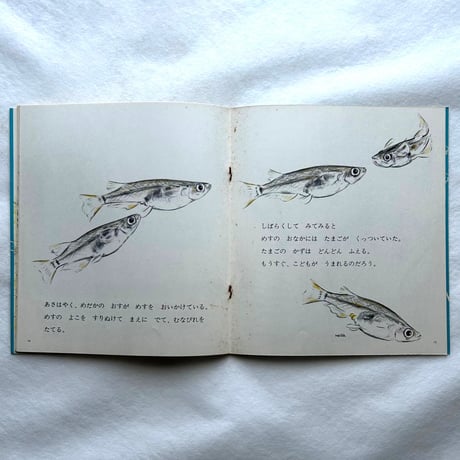 あさはやく、めだかの おすが めすを おいかけている。
めすの よこを すりぬけて まえに でて、むなびれを
たてる。
しばらくして みてみると
めすの おなかには たまごが くっついていた。
たまごの かずは どんどん ふえる。
もうすぐ、こどもが うまれるのだろう。